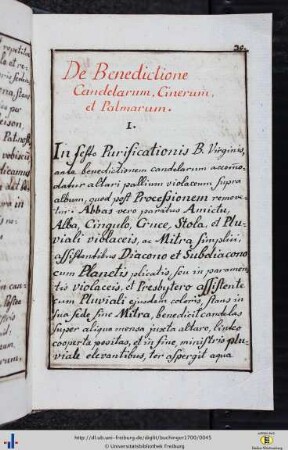 repetita
36.
De Benedictione
Candelarum, Cinerum,
et Palmarum.
I.
In festo Purificationis B. Virginis,
ante benedictionem candelarum accom̄o-
datur altari pallium violaceum supra
album, quod post Processionem remove-
tur: Abbas vero paratus Amictu,
Alba, Cingulo, Cruce, Stola, et Plu-
viali violaceis, ac Mitra simplici;
assistentibus Diacono et Subdiacono
cum Planetis plicatis, seu in paramen-
tis violaceis, et Presbytero assistente
cum Pluviali ejusdem coloris, stans in
sua sede sine Mitra, benedicit candelas
super aliqua mensa juxta altare, linteo
cooperta positas, et in fine, ministris plu-
viale elevantibus, ter aspergit aqua
http://dl.ub.uni-freiburg.de/diglit/buchinger1700/0045
© Universitätsbibliothek Freiburg